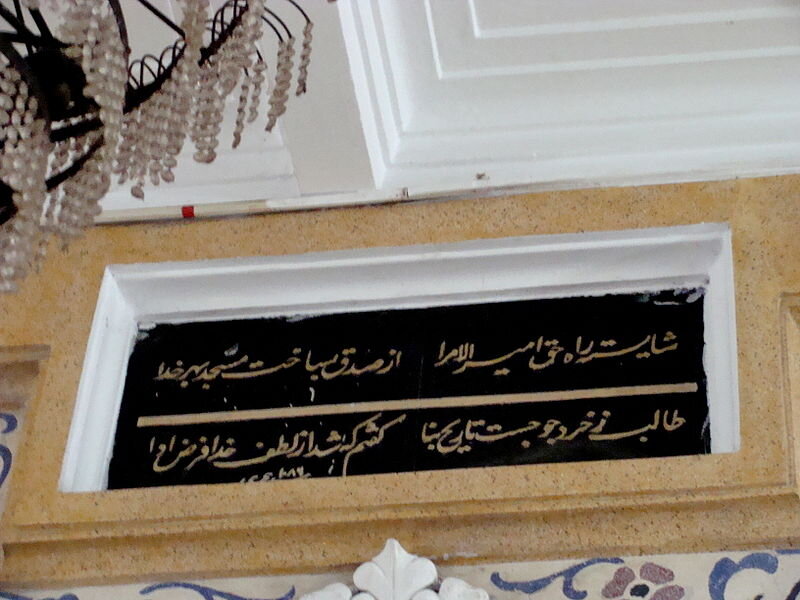 شایسته راه حق امیر الامرا از صدق بسا خت مسجد بهر خدا
طالب ز خرد چو جست تاریخ بنا گفتم که شد از لطف خدا فرض ادا